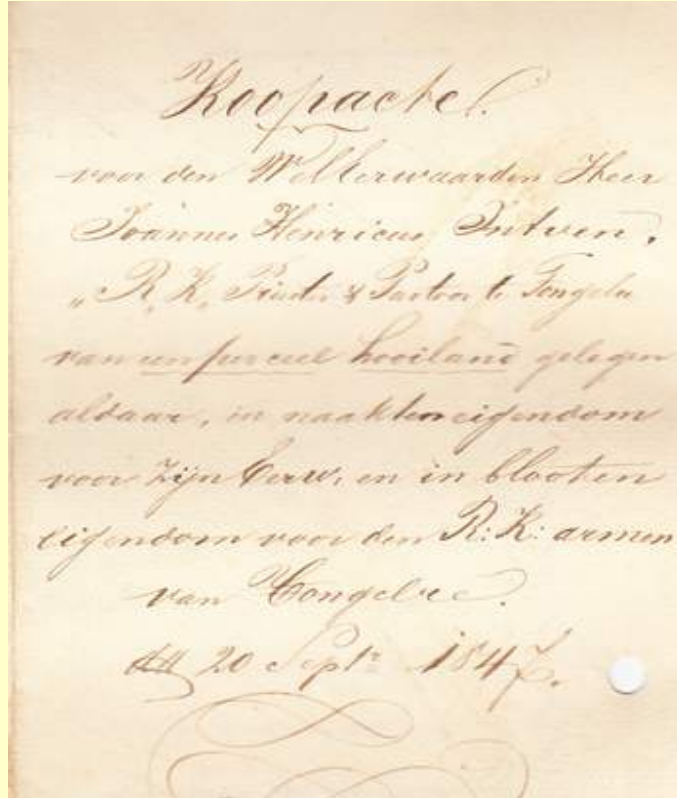 Koopacte
voor den WelEerwaarden Heer
Joannes Henricus Intven,
„ R. K. Priester & Pastoor te Tongelre
van een perceel hooiland gelegen
aldaar, in naakten eigendom
voor zijn Eerw. en in blooten
eigendom voor den R: K: armen
van Tongelre.
dd 20 Septr 1847.